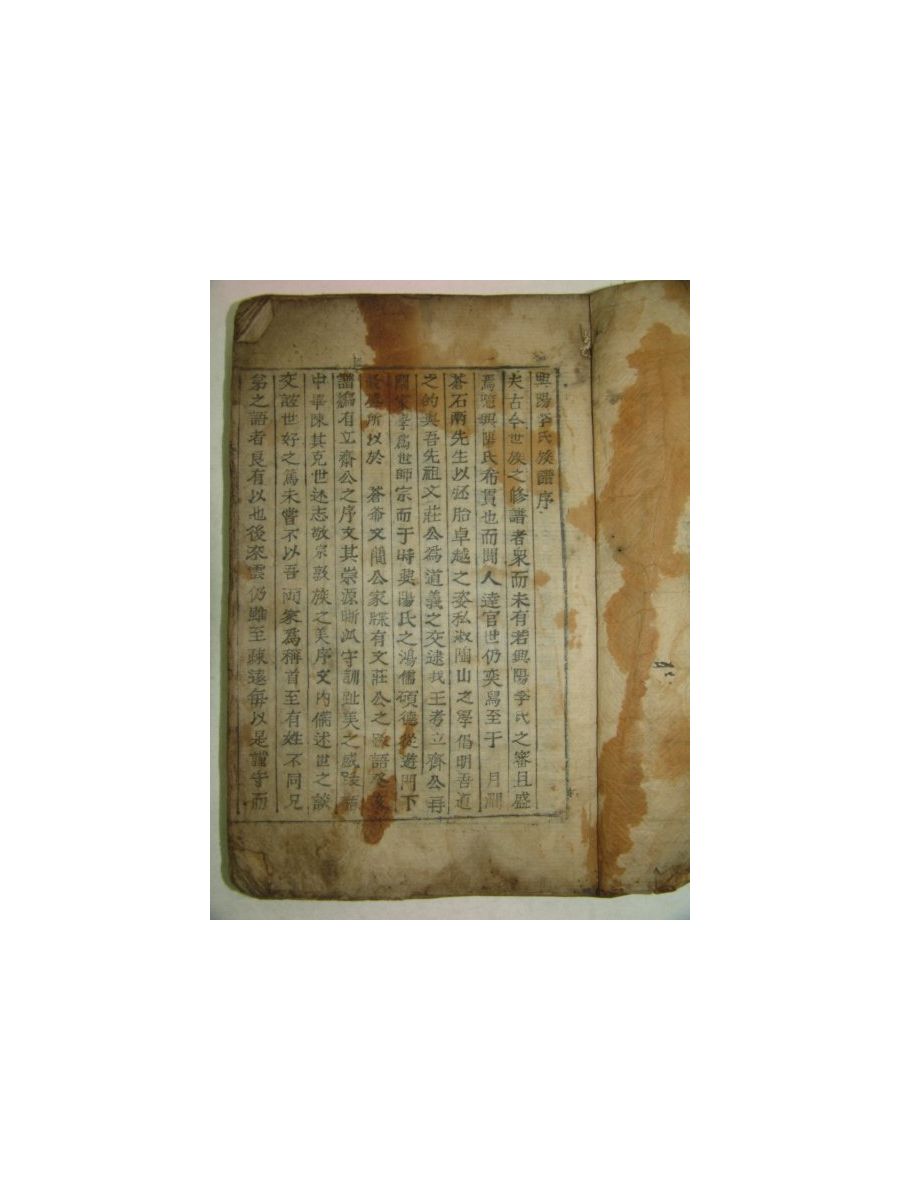 興陽李氏族譜序
夫古今世族之修譜者衆而未有若興陽李氏之審且盛
焉蓋興陽氏布貫也而聞人達官世仍奕舃至于 月澗
蒼石兩先生以胚胎卓越之姿私淑陶山之學倡明吾道
之的與吾先祖文莊公爲道義之交逮我王考立齋公再
闡家學爲世師宗而于時興陽氏之鴻儒碩德從遊門下
最盛所以於 蒼爺文簡公家牒有文莊公之跋語
譜編有立齋公之序文其崇源晰派守訓趾美之
中畢陳其克世述志敬宗敦族之美序文內備述世之談
交誼世好之篤未嘗不以吾兩家爲稱首至有姓不同兄
弟之語者良有以也後來雲仍雖至疎遠每以是謹守而